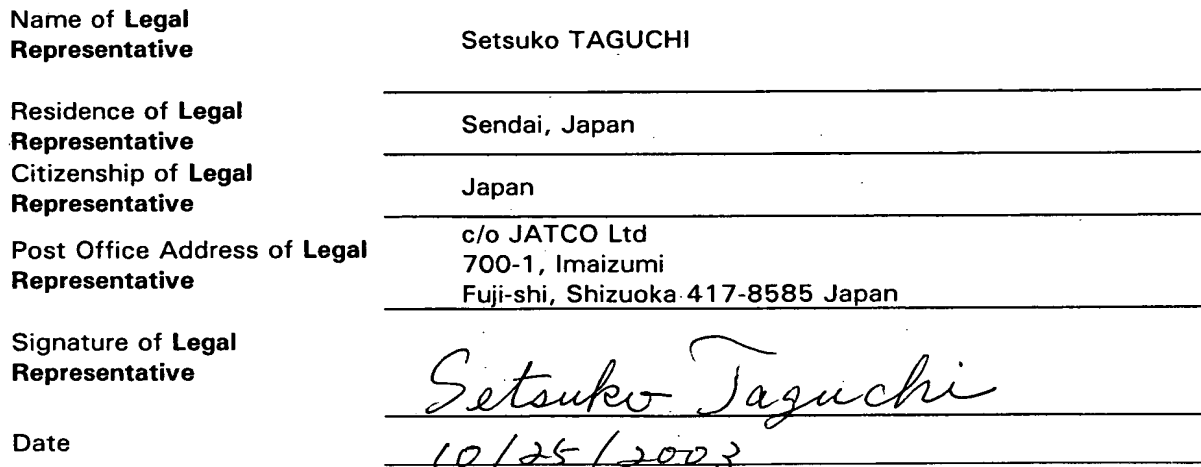 Name of Legal
Representative
Setsuko TAGUCHI
Residence of Legal
Representative
Sendai, Japan
Citizenship of Legal
Representative
Japan
Post Office Address of Legal
Representative
c/o JATCO Ltd
700-1, Imaizumi
Fuji-shi, Shizuoka 417-8585 Japan
Signature of Legal
Representative
Setsuko Taguchi
Date
10/25/2003